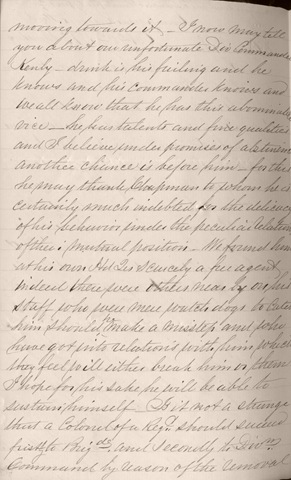 moving towards it – I now may tell
you about our unfortunate Div Commander
Kenly – drink is his failing and he
knows and his commander knows and
we all know that he has this abominable
vice – He has talents and fine qualities
and I believe under promises of abstinence
another chance is before him – for this
he may thank Chapman to whom he is
certainly much indebted for the delicacy
of his behavior under the peculiar relation
of their mutual position – We found him
at his own Hd Qrs scarcely a free agent
indeed there were others near by on his
staff who were mere watch dogs to catch
him should he make a misstep and who
have got into relations with him which
they feel will either break him or them
I hope for his sake he will be able to
sustain himself – Is it not a strange
that a Colonel of a Regt. should succeed
first to Brigde. and secondly to Divn
Command by reason of the removal